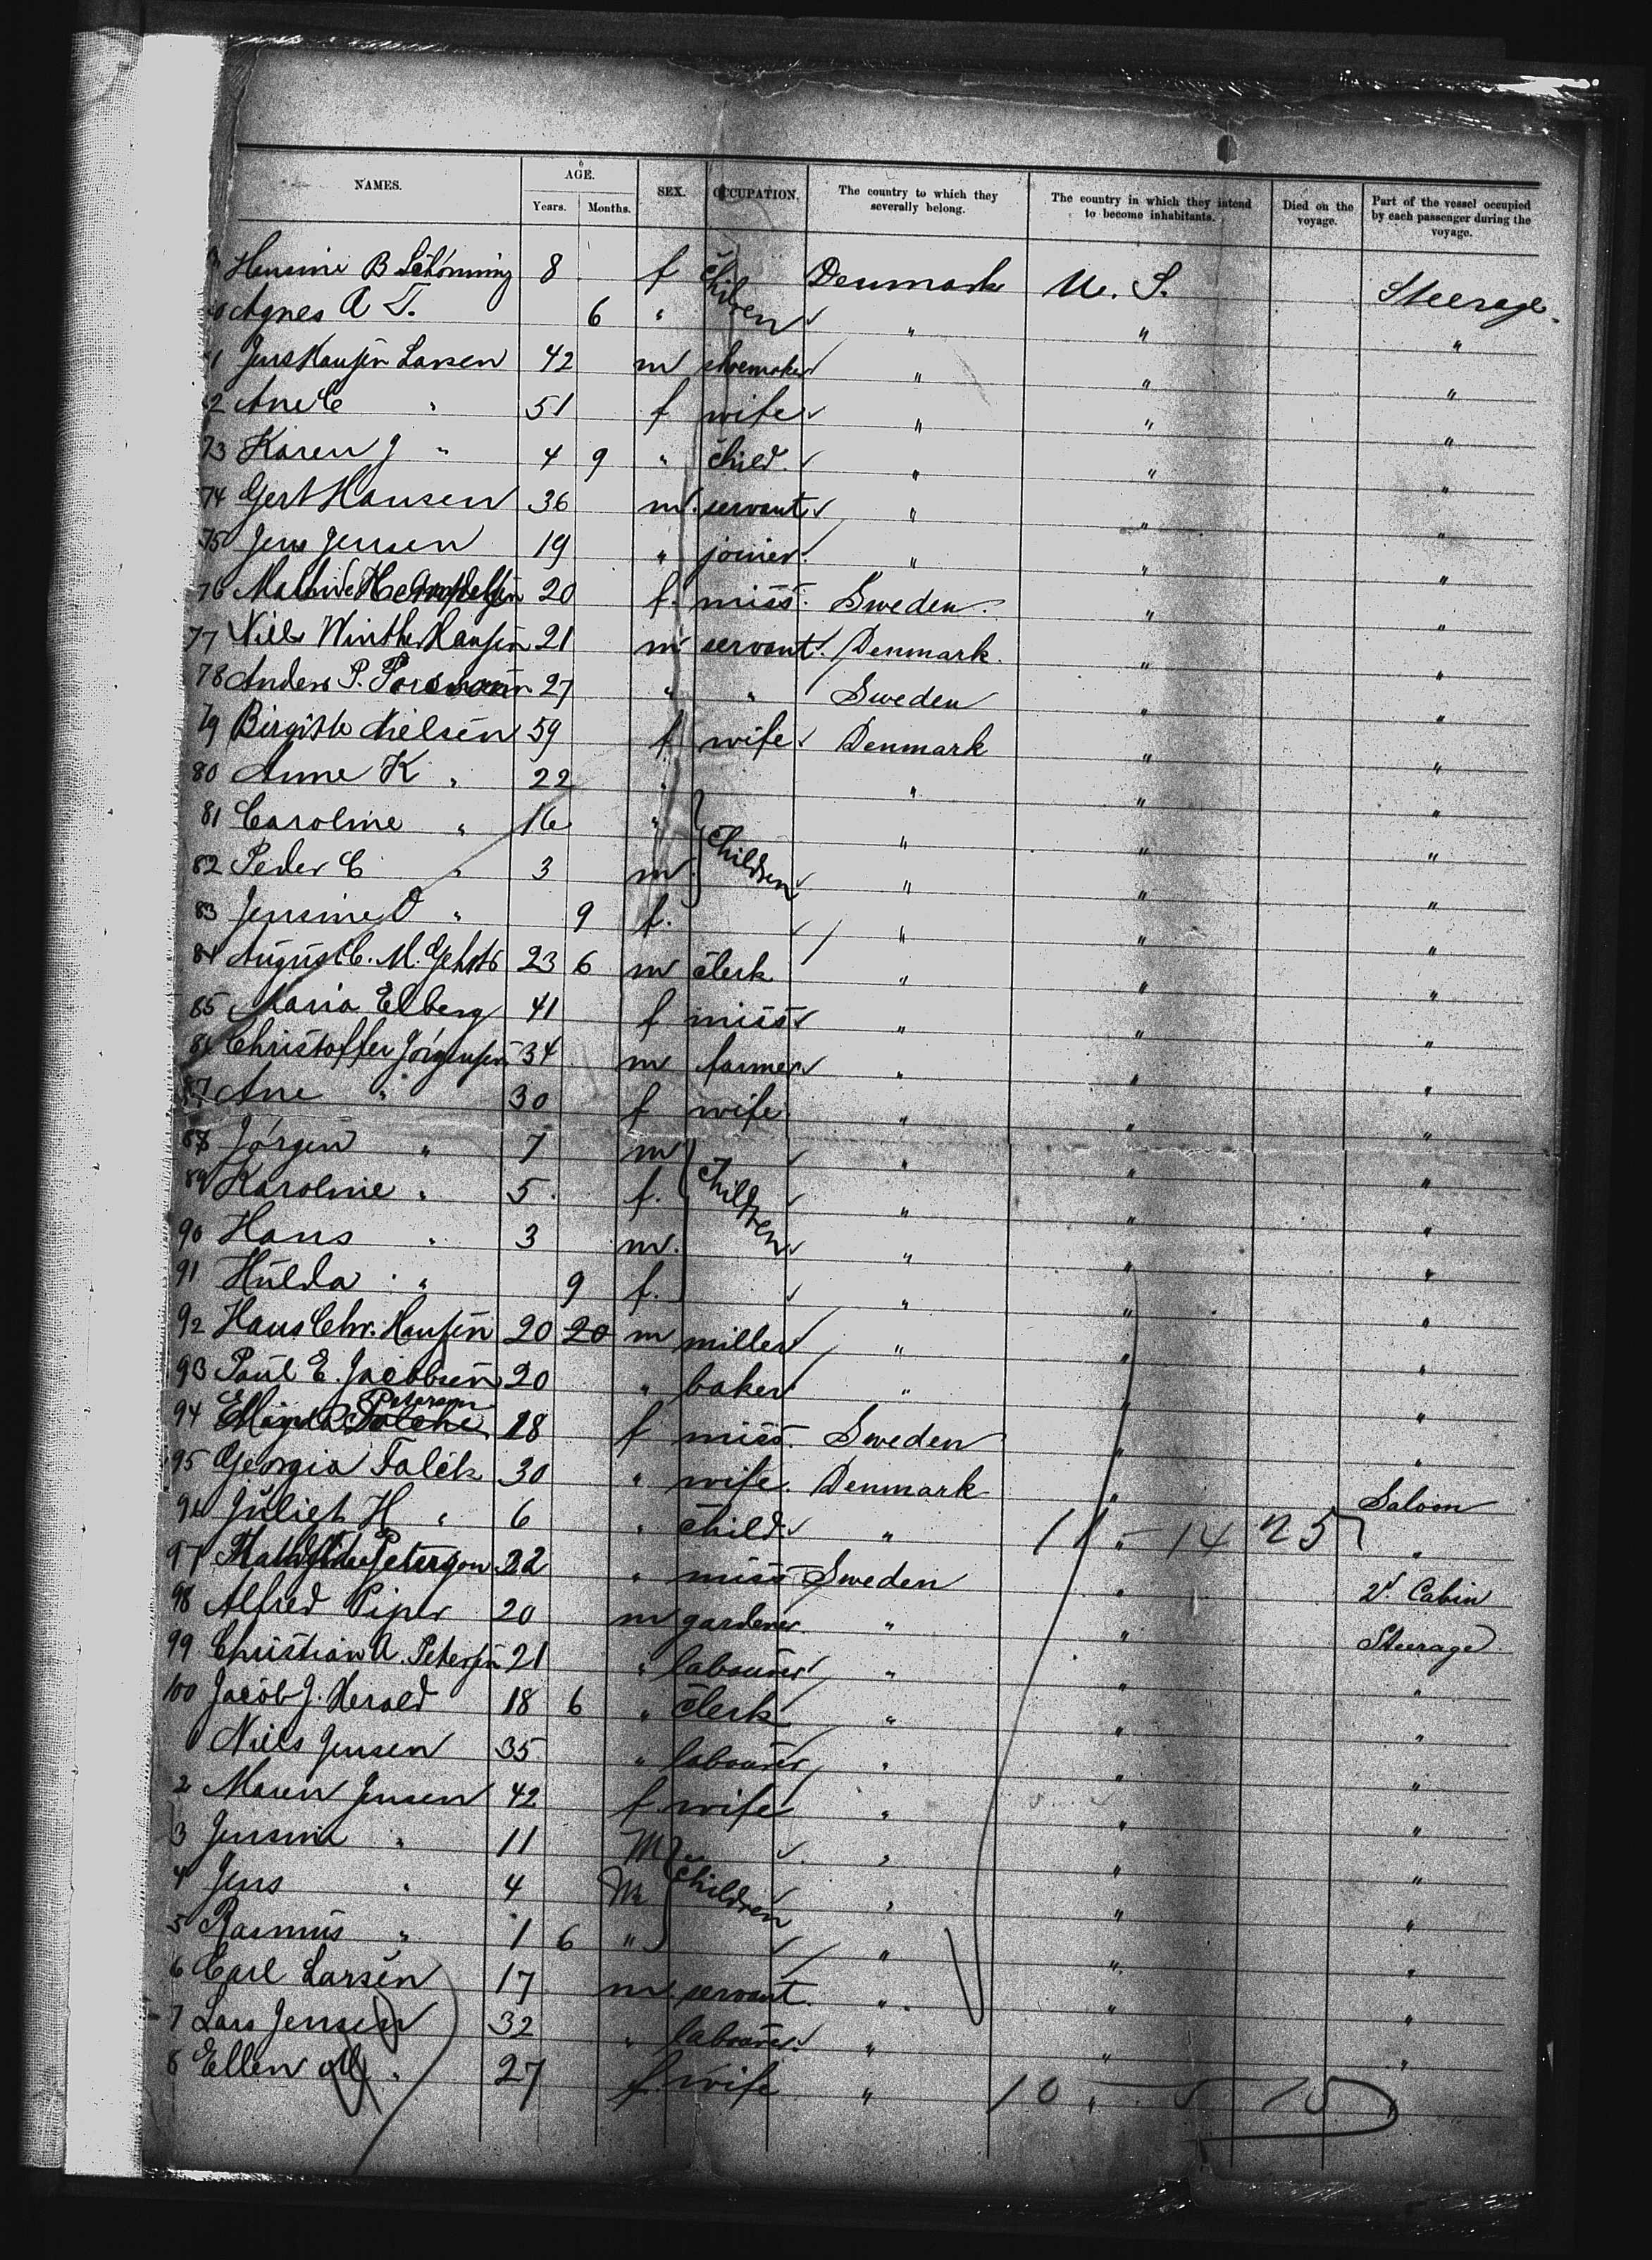 NAMES. AGE. SEX. OCCUPATION. The country to which they severally belong. The country in which they intend to become inhabitants. Died on the voyage. Part of the vessel occupied by each passenger during the voyage.
Years. Months.
B Schönning 8 f children Denmark U. S. Steerage.
Agnes A T. 6 " " " "
1 Jens Hansen Larsen 42 m shoemaker " " "
2 Ane C " 51 f wife " " "
73 Karen J " 4 9 " child. " " "
74 Gert Hansen 36 m. servant " " "
75 Jens Jensen 19 " joiner. " " "
76 20 f. miss. Sweden. " "
77 Niels Winther Hansen 21 m servant. Denmark. " "
78 Anders P. 27 " " Sweden " "
79 Birgitte Nielsen 59 f wife Denmark " "
80 Anne K " 22 " " " "
81 Caroline " 16 " children " " "
82 Peder C " 3 m " " "
83 Jensine O " 9 f. " " "
84 August C. M. 23 6 m clerk " " "
85 Maria Elberg 41 f miss " " "
86 Christoffer Jörgensen 34 m farmer " " "
87 Ane " 30 f wife " " "
88 Jörgen " 7 m children " " "
89 Karoline " 5. f. " " "
90 Hans " 3 m. " " "
91 Hulda " 9 f. " " "
92 Hans Chr. Hansen 20 20 m miller " " "
93 Paul E. Jacobsen 20 " baker " " "
94 Petersen 18 f miss. Sweden " "
95 Georgia Falck 30 " wife. Denmark " Saloon
96 Juliet H " 6 " child " " "
11 - 14 25
97 Petersson 22 " miss Sweden " 2d. Cabin
98 Alfred Piper 20 m gardener. " " Steerage
99 Christian A. Petersen 21 " labourer " " "
100 Jacob J. Herold 18 6 " clerk " " "
Niels Jensen 35 " labourer " " "
2 Maren Jensen 42 f. wife " " "
3 Jensine " 11 M children " " "
4 Jens " 4 M " " "
5 Rasmus " 1 6 " " " "
6 Carl Larsen 17 m servant. " " "
7 Lars Jensen 32 " labourer. " " "
8 Ellen M. " 27 f. wife " " "
10 5